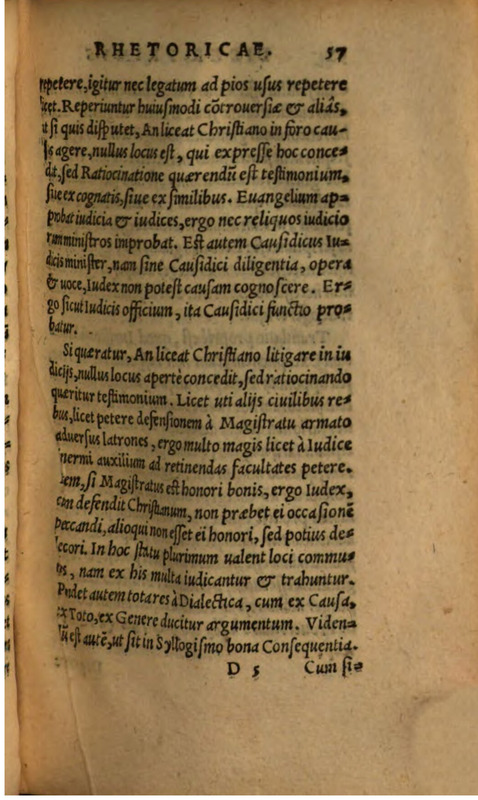 RHETORICAE. 57
repetere, igitur nec legatum ad pios usus repetere
licet. Reperiuntur huiusmodi cōtrouersiæ & aliâs,
ut si quis disputet, An liceat Christiano in foro cau-
sas agere, nullus locus est, qui expresse hoc conce-
dit, sed Ratiocinatione quærendū est testimonium,
siue ex cognatis, siue ex similibus. Euangelium ap-
probat iudicia & iudices, ergo nec reliquos iudicio
rum ministros improbat. Est autem Causidicus Iu-
dicis minister, nam sine Causidici diligentia, opera
& uoce, Iudex non potest causam cognoscere. Er-
go sicut Iudicis officium, ita Causidici functio pro-
batur.
Si quæratur, An liceat Christiano litigare in iu
dicijs, nullus locus apertè concedit, sed ratiocinando
quæritur testimonium. Licet uti alijs ciuilibus re-
bus, licet petere defensionem à Magistratu armato
aduersus latrones, ergo multo magis licet à Iudice
inermi auxilium ad retinendas facultates petere.
Item, si Magistratus est honori bonis, ergo Iudex,
cum defendit Christianum, non præbet ei occasionē
peccandi, alioqui non esset ei honori, sed potius de-
decori. In hoc statu plurimum ualent loci commu-
nes, nam ex his multa iudicantur & trahuntur.
Pendet autem tota res à Dialectica, cum ex Causa,
ex Toto, ex Genere ducitur argumentum. Viden-
dū est autē, ut sit in Syllogismo bona Consequentia.
D 5 Cum si-